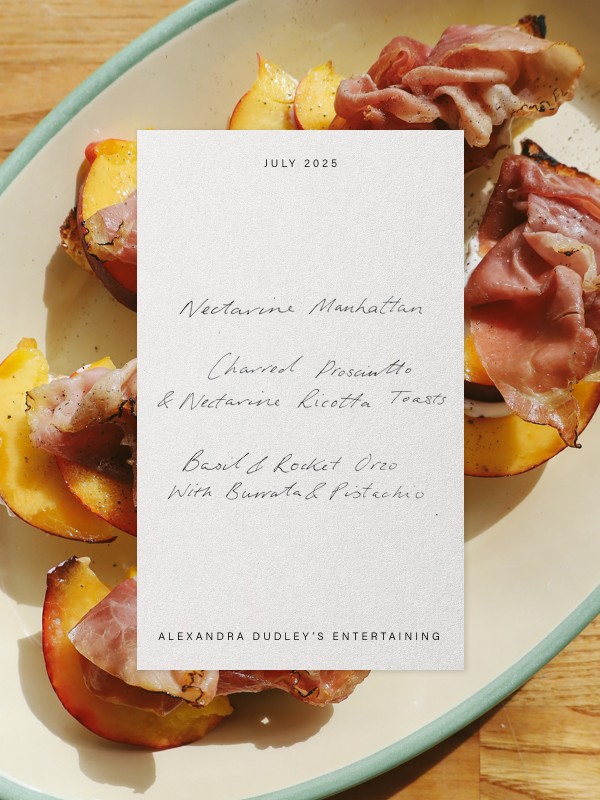 JULY 2025
Nectarine Manhattan
Charred Prosciutto
& Nectarine Ricotta Toasts
Basil & Rocket Orzo
With Burrata & Pistachio
ALEXANDRA DUDLEY'S ENTERTAINING